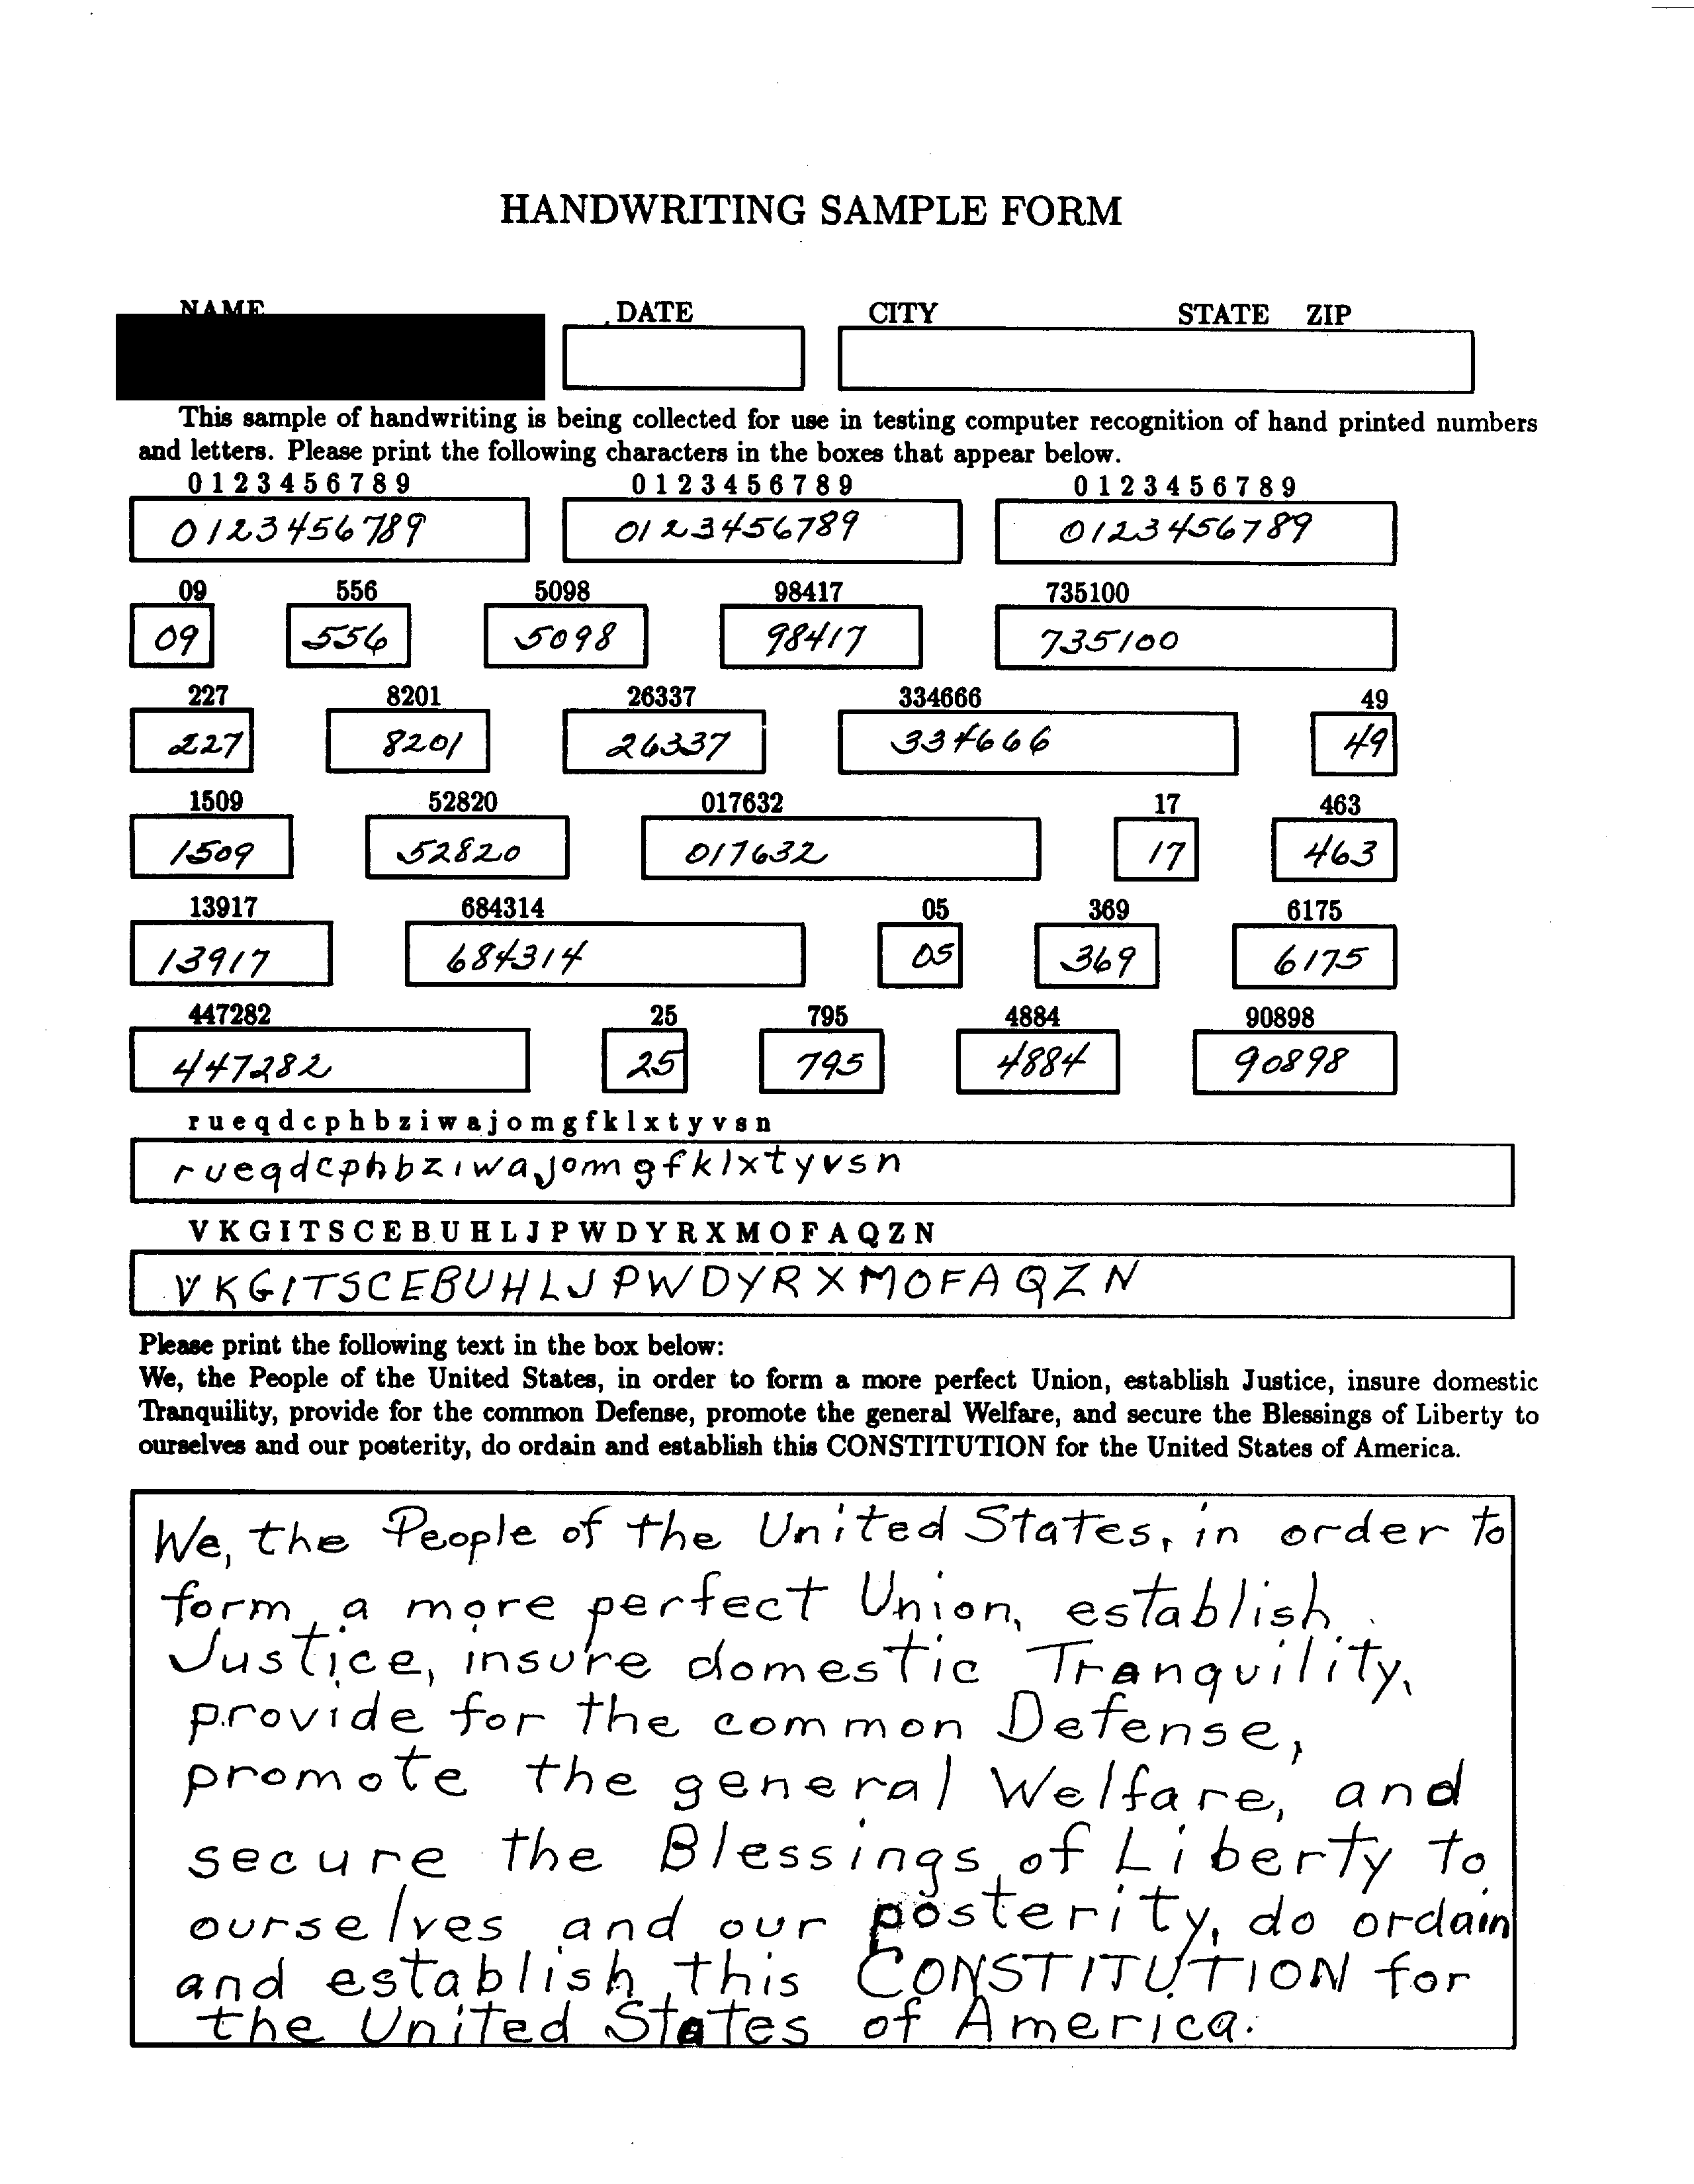 HANDWRITING SAMPLE FORM
NAME DATE CITY STATE ZIP
This sample of handwriting is being collected for use in testing computer recognition of hand printed numbers
and letters. Please print the following characters in the boxes that appear below.
0 1 2 3 4 5 6 7 8 9 0 1 2 3 4 5 6 7 8 9 0 1 2 3 4 5 6 7 8 9
0123456789 0123456789 0123456789
09 556 5098 98417 735100
09 556 5098 98417 735100
227 8201 26337 334666 49
227 8201 26337 334666 49
1509 52820 017632 17 463
1509 52820 017632 17 463
13917 684314 05 369 6175
13917 684314 05 369 6175
447282 25 795 4884 90898
447282 25 795 4884 90898
r u e q d c p h b z i w a j o m g f k l x t y v s n
rueqdcphbziwajomgfklxtyvsn
V K G I T S C E B U H L J P W D Y R X M O F A Q Z N
VKGITSCEBUHLJPWDYRXMOFAQZN
Please print the following text in the box below:
We, the People of the United States, in order to form a more perfect Union, establish Justice, insure domestic
Tranquility, provide for the common Defense, promote the general Welfare, and secure the Blessings of Liberty to
ourselves and our posterity, do ordain and establish this CONSTITUTION for the United States of America.
We, the People of the United States, in order to
form a more perfect Union, establish
Justice, insure domestic Tranquility,
provide for the common Defense,
promote the general Welfare, and
secure the Blessings of Liberty to
ourselves and our posterity, do ordain
and establish this CONSTITUTION for
the United States of America.